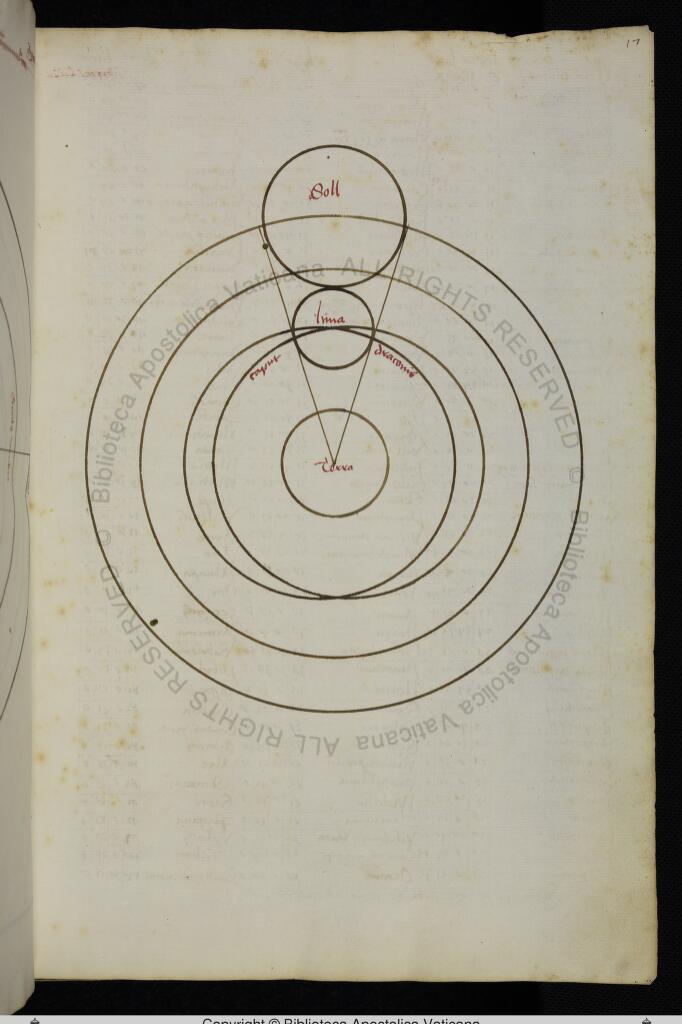 17
Soll
luna
caput
draconis
Terra
© Biblioteca Apostolica Vaticana ALL RIGHTS RESERVED © Biblioteca Apostolica Vaticana ALL RIGHTS RESERVED
Copyright © Biblioteca Apostolica Vaticana